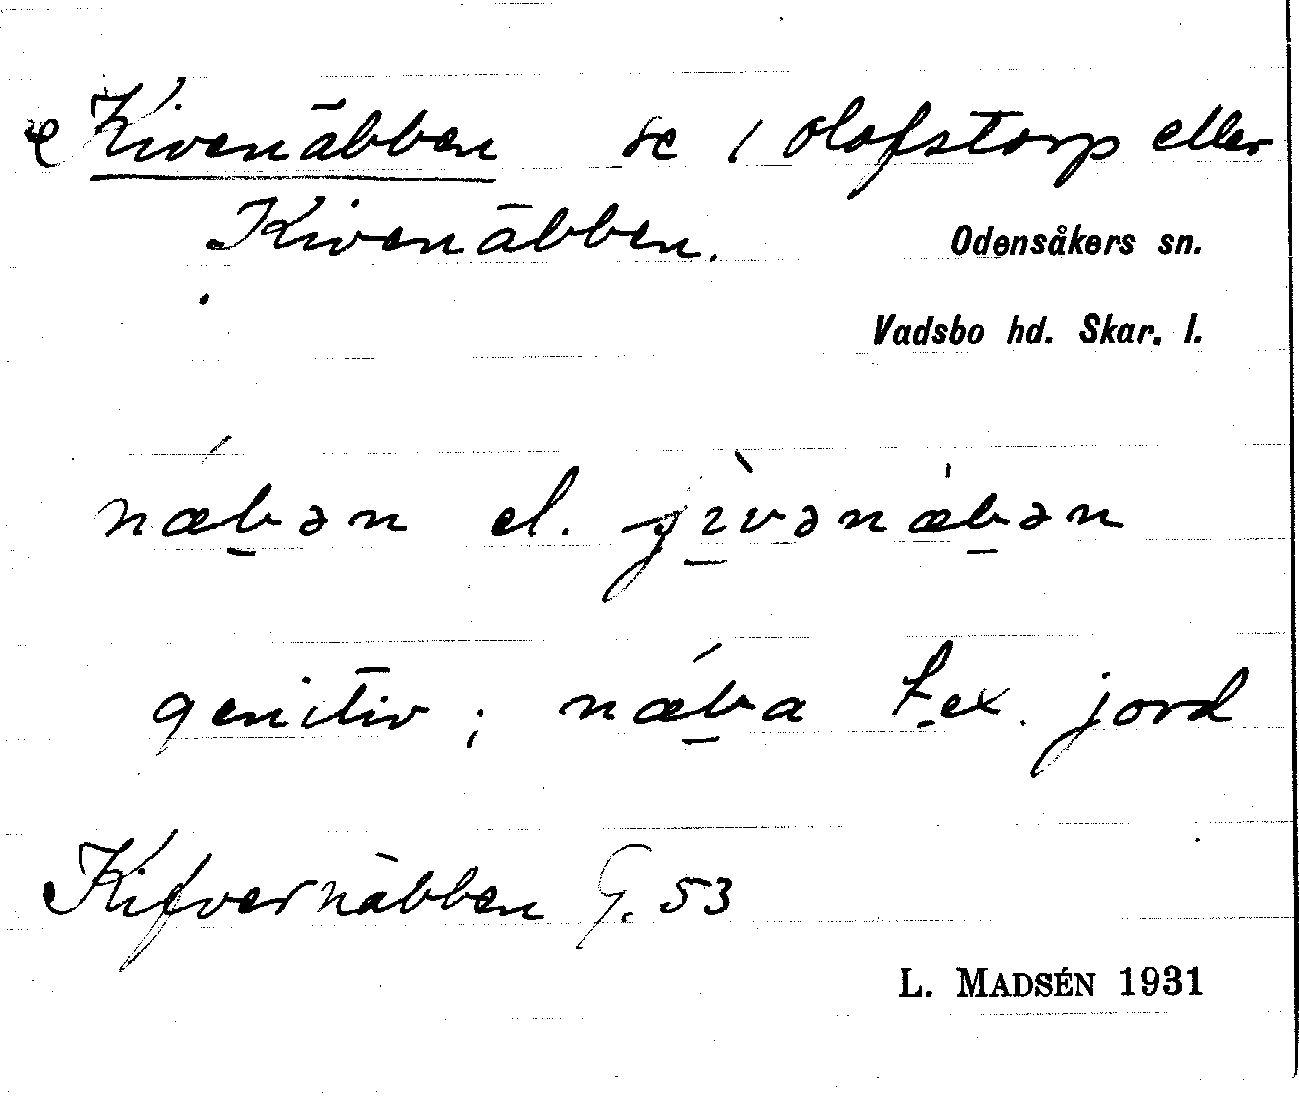 Kivenäbben se 1 Olofstorp eller
Kivenäbben.
Odensåkers sn.
Vadsbo hd. Skar. l.
næbən el. jìvənæbən
genitiv; næba t.ex. jord
Kifvernäbben G. 53
L. MADSÉN 1931